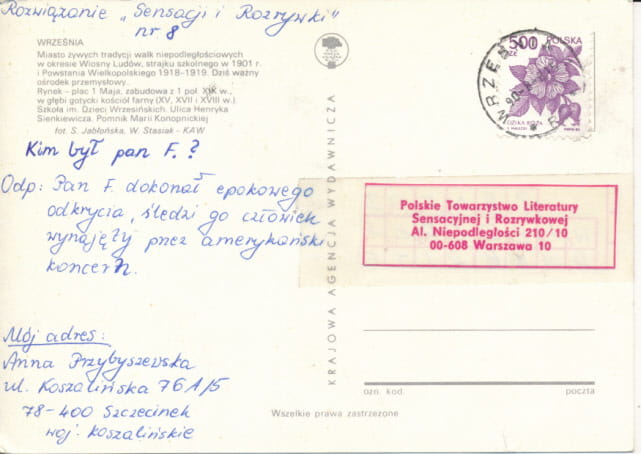 Rozwiązanie „Sensacji i Rozrywki"
nr 8
WRZEŚNIA
Miasto żywych tradycji walk niepodległościowych
w okresie Wiosny Ludów, strajku szkolnego w 1901 r.
i Powstania Wielkopolskiego 1918-1919. Dziś ważny
ośrodek przemysłowy.
Rynek – plac 1 Maja, zabudowa z 1 poł. XIX w.,
w głębi gotycki kościół farny (XV, XVII i XVIII w.)
Szkoła im. Dzieci Wrzesińskich. Ulica Henryka
Sienkiewicza. Pomnik Marii Konopnickiej
fot. S. Jabłońska, W. Stasiak - KAW
Kim był pan F.?
Odp: Pan F. dokonał epokowego
odkrycia, śledzi go człowiek
wynajęty przez amerykański
koncern.
Mój adres:
Anna Przybyszewska
ul. Koszalińska 76A/5
78-400 Szczecinek
woj. koszalińskie
KRAJOWA AGENCJA WYDAWNICZA
500
ZŁ
POLSKA
DZIKA RÓŻA
WRZEŚNIA
Polskie Towarzystwo Literatury
Sensacyjnej i Rozrywkowej
Al. Niepodległości 210/10
00-608 Warszawa 10
ozn. kod.
poczta
Wszelkie prawa zastrzeżone